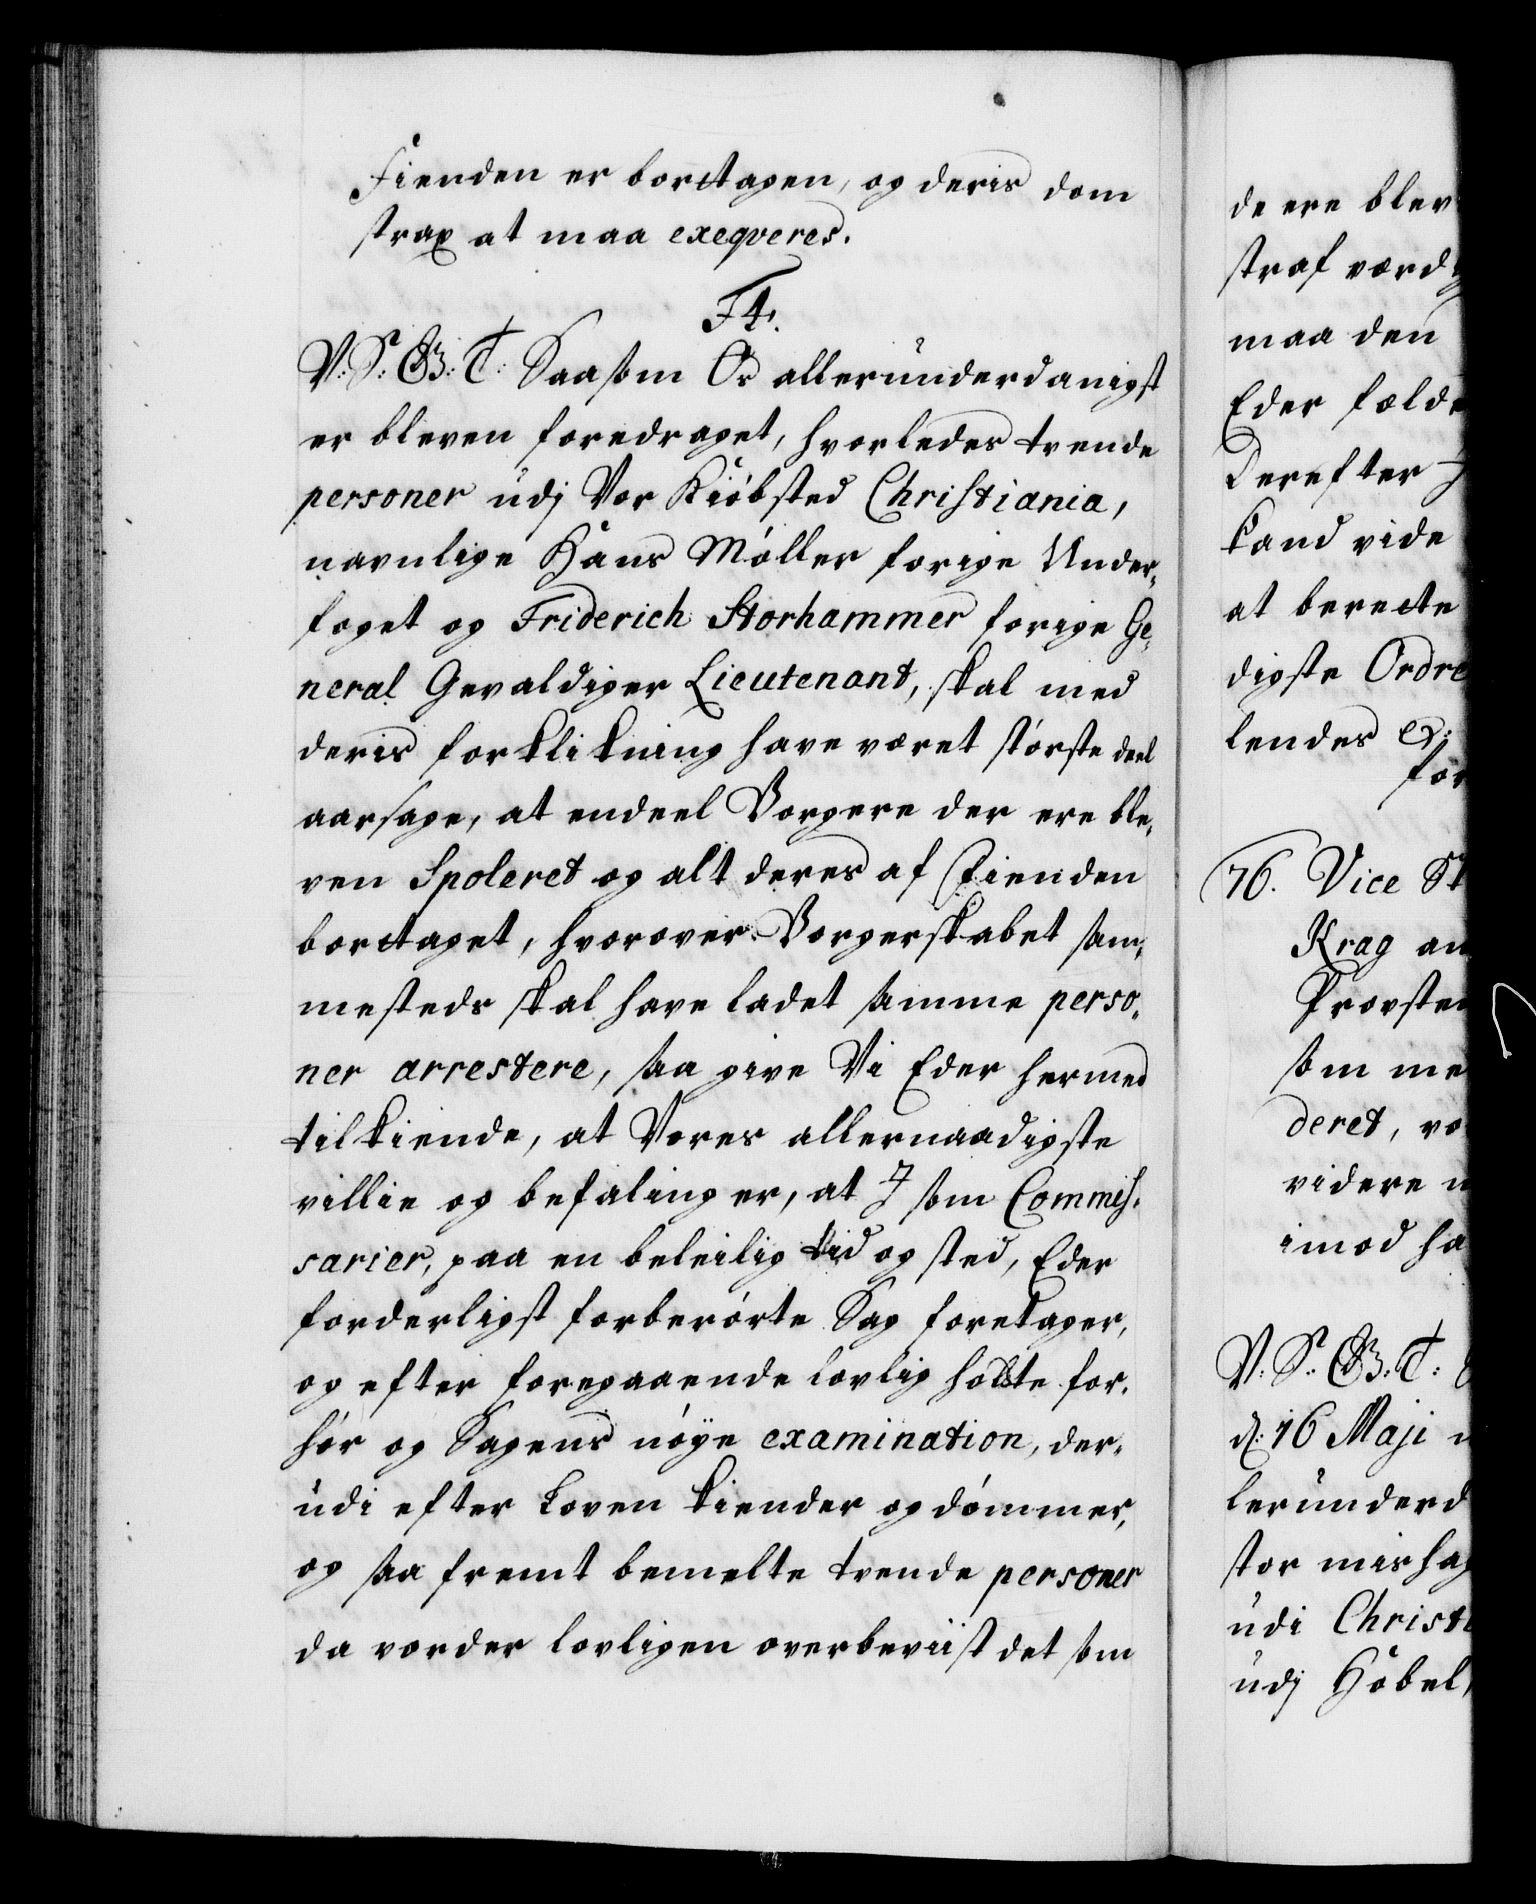 Fienden er borttagen, og deris dom
strax at maa exeqveres.
F4.
V. S. G. T. Saasom Os allerunderdanigst
er bleven foredraget, hvorledes tvende
personer udj Vor Kiöbsted Christiania,
navnlige Hans Møller forige Under-
foget og Friderich Storhammer forige Ge-
neral Gevaldiger Lieutenant, skal med
deris forklikning have været største deel
aarsage, at endeel Borgere der ere ble-
ven Spoleret og alt deres af Fienden
borttaget, hvorover Borgerskabet sam-
mesteds skal have ladet samme perso-
ner arrestere, saa give Vi Eder hermed
tilkiende, at Vores allernaadigste
villie og befaling er, at I som Commis-
sarier, paa en beleilig tid og sted, Eder
forderligst forberørte Sag foretager,
og efter foregaaende lovlig holdte for-
hør og Sagens nøye examination, der-
udi efter Loven kiender og dømmer,
og saa fremt bemelte tvende personer
da vorder lovligen overbeviist det som
de ere blev
straf værd
maa den
Eder fælde
Derefter
kand vide
at berette
digste Ordre
lendes
for
76. Vice St
Krag an
Provsten
som me
deret, vo
videre
imod ha
V. S. G. T.
d. 16 Maji
lerunderd
stor mishag
udi Christi
udj Hobel,